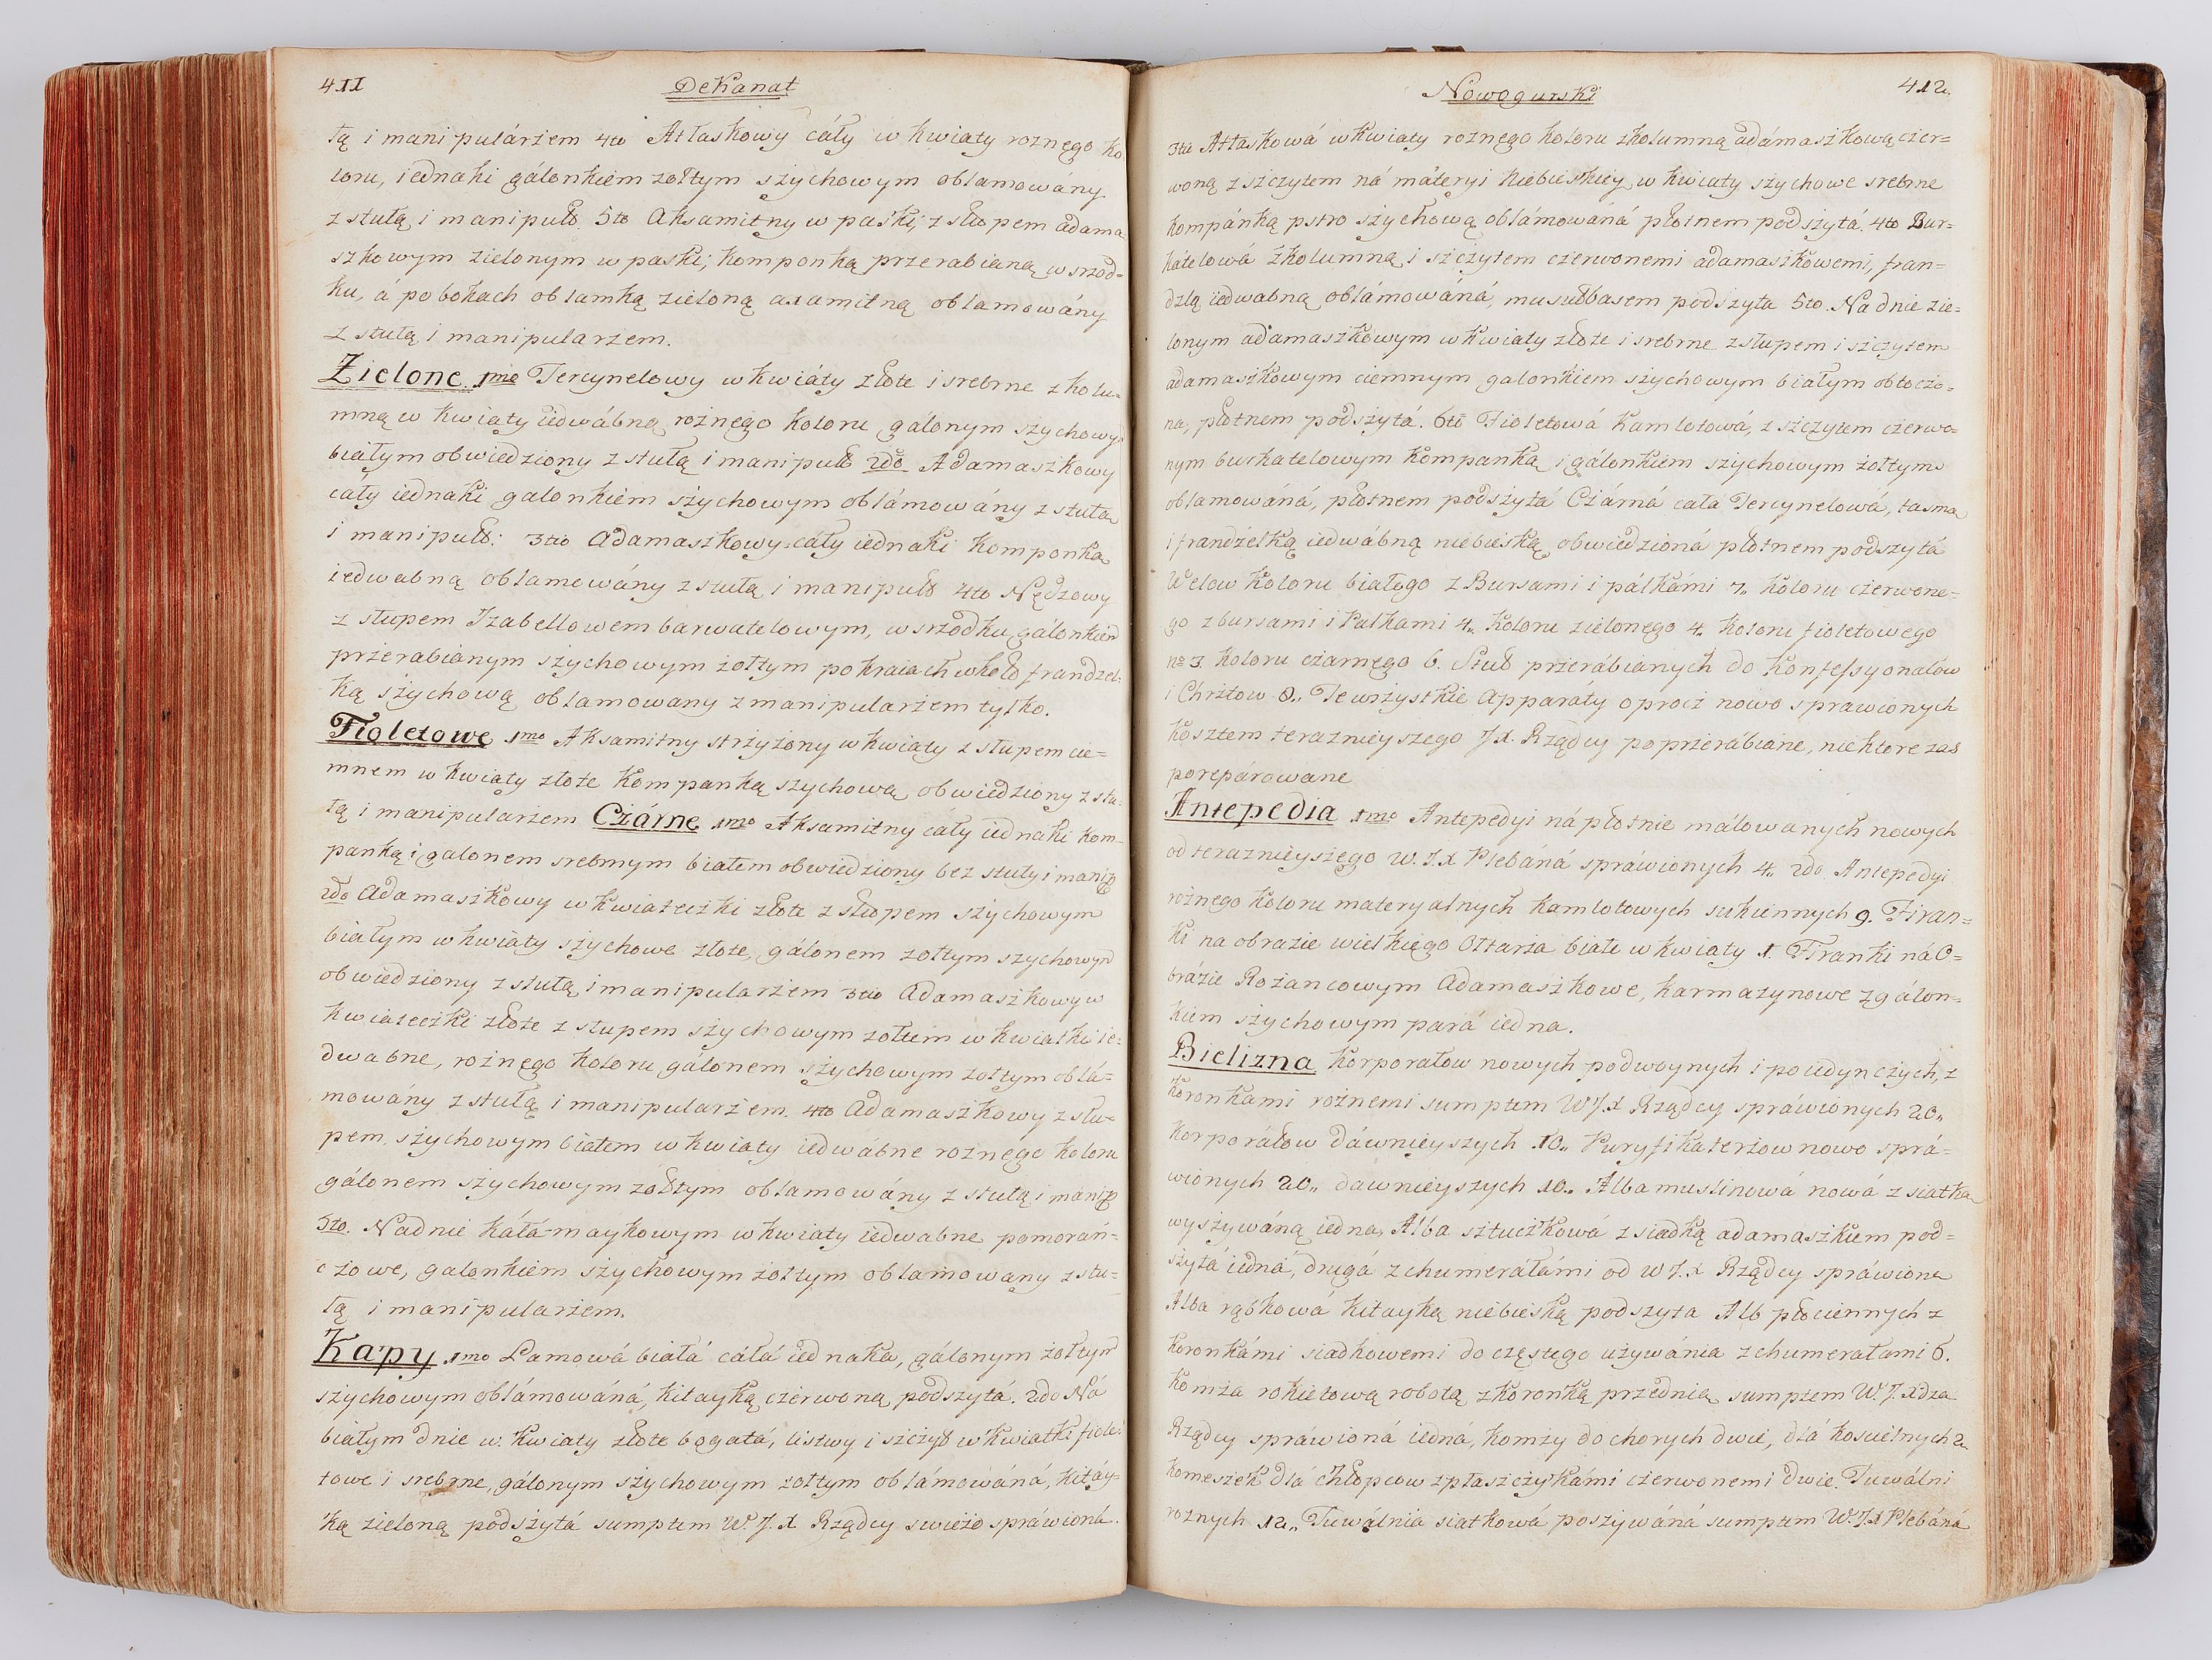 411
DeKanat
łą i manipulárżem 4to Atłaskowy cáły w kwiaty rożnęgo ko-
loru, iednaki gálonkiem żołtym szychowym oblamowány
z stułą i manipuł. 5to Aksamitny w paski, z słupem adama-
szkowym zielonym w paski, komponką przerabianą w srzod=
ku, á po bokach oblamką zieloną axamitną oblamowány
z stułą i manipularzem.
Zielone. 1mo Tercynelowy w kwiáty złote i srebrne z kolu=
mną w kwiaty iedwábną rożnego koloru gálonym szychowym
białym obwiedziony z stułą i manipuł 2do Adamaszkowy
cáły iednaki galonkiem szychowym oblámowány z stułą
i manipuł: 3tio Adamaszkowy cáły iednaki komponką
iedwabną oblamowány z stułą i manipuł 4to Nędzowy
z słupem Izabellowem barwatelowym, w srzodku gálonkiem
przerabianym szychowym żołtym po kraiach wkoło frandzel=
ką szychową oblamowany z manipularżem tylko.
Fioletowe 1mo Aksamitny strzyżony w kwiaty z słupem cie=
mnem w kwiaty złote kompanką szychową obwiedziony z stu=
łą i manipularżem Czárne 1mo Aksamitny cáły iednaki kom=
panką i galonem srebrnym białem obwiedziony bez stuły i manip
2do Adamaszkowy w kwiateczki złote z słupem szychowym
białym w kwiaty szychowe złote, gálonem żołtym szychowym
obwiedziony z stułą i manipularżem 3tio Adamaszkowy w
kwiateczki złote z słupem szychowym żołtem w kwiatki ie=
dwabne, rożnęgo koloru gálonem szychowym żołtym oblá=
mowány z stułą i manipularżem. 4to Adamaszkowy z słu=
pem szychowym białem w kwiaty iedwábne rożnego koloru
gálonem szychowym żołtym oblamowány z stułą i manip
5to. Na dnie káłá-maykowym w kwiaty iedwabne pomorán=
czowe, galonkiem szychowym żołtym oblamowany z stu=
łą i manipularżem.
Kapy 1mo Lamowá białá cáłá iednaka, gálonym żołtym
szychowym oblámowáná, kitayką czerwoną podszytá. 2do Ná
białym dnie w kwiaty złote bogatá, listwy i szczyt w kwiatki fiole=
towe i srebrne, gálonym szychowym żołtym oblámowáná, kitáy=
ką zieloną podszytá sumptem W. J. X Rządcy swieżo spráwioná.
Nowogurski
412.
3tio Atłaskowá w kwiaty rożnęgo koloru z kolumną adámaszkową czer=
woną z szczytem ná máteryi niebieskiey w kwiaty szychowe srebrne
kompánką pstro szychową oblámowáná płotnem podszytá. 4to Bur=
katelowá z kolumną i szczytem czerwonemi adamaszkowemi, fran=
dzlą iedwabną oblámowáná, musułbasem podszyta 5to. Na dnie zie=
lonym adamaszkowym w kwiaty złote i srebrne z słupem i szczytem
adamaszkowym ciemnym galonkiem szychowym białym obłoczo=
na, płotnem podszytá. 6to Fioletowá Kamlotowá, z szczytem czerwo=
nym burkatelowym kompanką i gálonkiem szychowym żołtym
oblamowáná, płotnem podszytá Czárná cała Tercynelowá, tasmą
i frandzelką iedwábną niebieską obwiedzioná płotnem podszytá
Welow koloru białego z Bursami i pálkámi 7. koloru czerwone=
go z bursami i Palkami 4. koloru zielonęgo 4. koloru fioletowego
no 3. koloru czarnęgo 6. Stuł przerábianych do Konfessyonałow
i Chrztow 8. Te wszystkie Apparaty oprocz nowo sprawionych
kosztem teraznieyszego J.X. Rządcy poprzerábiane, niektore zas
poreparowane
Antepedia 1mo Antepedyi ná płotnie málowanych nowych
od teraznieyszęgo W. J. X Plebáná spráwionych 4. 2do Antepedyi
rożnego koloru materyalnych kamlotowych sukiennych 9. Firan=
ki na obrazie wielkiego Ołtarza białe w kwiaty 1. Firanki ná O=
brázie Rożancowym Adamaszkowe, karmazynowe z gálon=
kiem szychowym pará iedna.
Bielizna Korporałow nowych podwoynych i poiedynczych, z
koronkami rożnemi sumptem W J. X Rządcy spráwionych 20.
Korporáłow dáwnieyszych 10. Puryfikaterżow nowo sprá=
wionych 20. dawnieyszych 10. Alba muslinowá nowá z siatką
wyszywáną iedna, Alba sztuczkowá z siadką adamaszkiem pod=
szytá iedná, drugá z chumeráłámi od W J. X Rządcy spráwiona
Alba rąbkowá kitayką niebieską podszyta Alb płociennych z
koronkámi siadkowemi do częstego używánia z chumerałami 6.
Komża rokietową robotą z koronką przednią sumptem W. J. Xdza
Rządcy spráwioná iedná, komży do chorych dwie, dlá koscielnych 2.
komeszek dlá chłopcow z płaszczykámi czerwonemi dwie. Tuwálni
rożnych 12. Tuwálnia siatkowá poszywáná sumptem W. J. X Plebáná